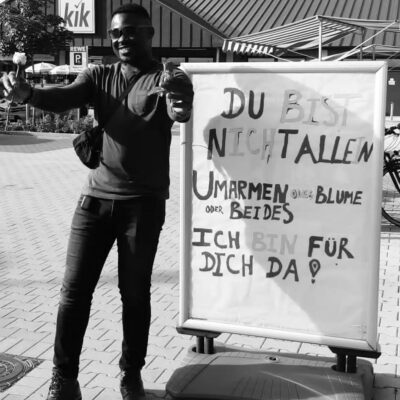 kik
REWE
P
DU BIST
NICHT ALLEIN
UMARMEN ODER BLUME
ODER BEIDES
ICH BIN FÜR
DICH DA!